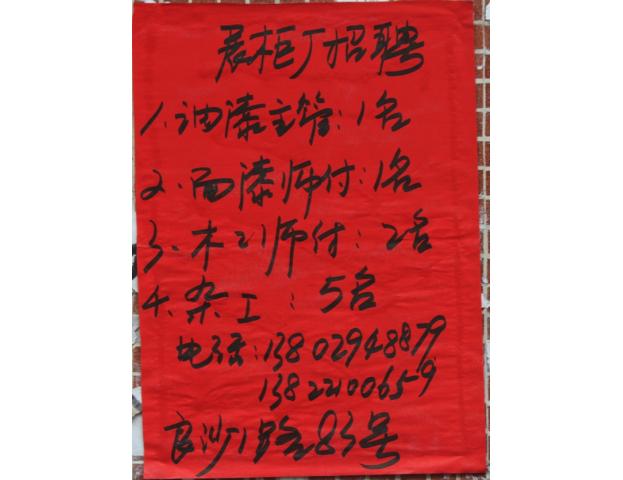 展柜厂招聘
1.油漆主管:1名
2.面漆师付:1名
3.木工师付:2名
4.杂工:5名
电话:13802948879
13822100659
良沙1路83号